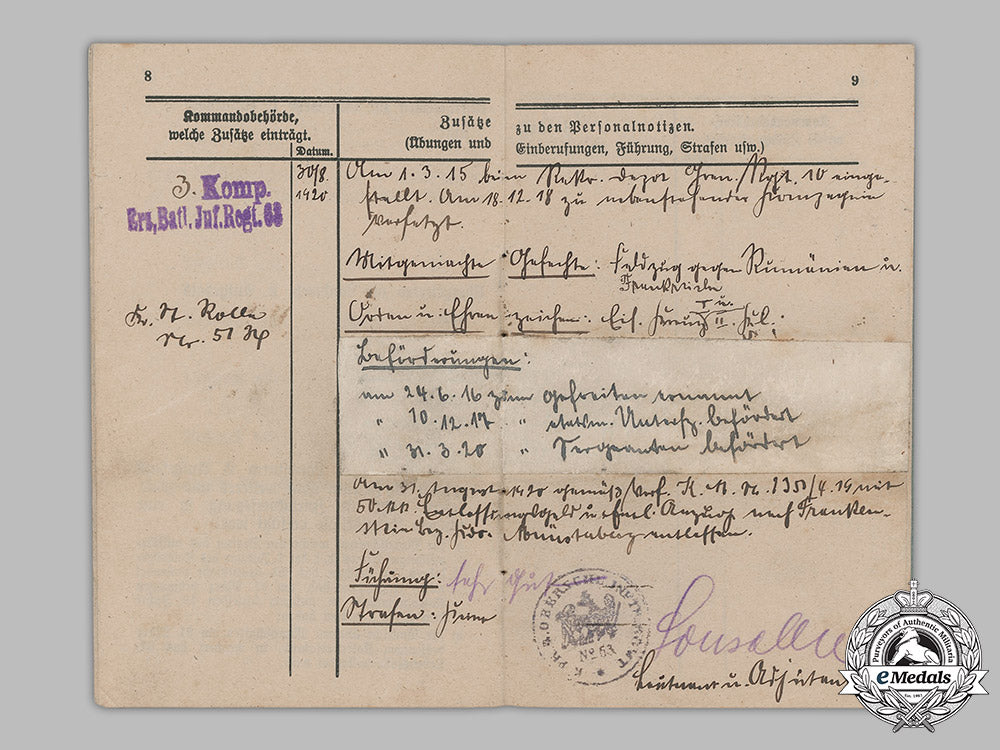 8
9
Kommandobehörde,
welche Zusätze einträgt.
Datum.
Zusätze zu den Personalnotizen.
(Übungen und Einberufungen, Führung, Strafen usw.)
3. Komp.
Ers. Batl. Inf. Regt. 63
30/8.
1920
Am 1.3.15 beim Rekr. Depot Gren. Regt. 10 einge-
stellt. Am 18.12.18 zu nebenstehender Kompagnie
versetzt.
Mitgemachte Gefechte: Feldzug gegen Rumänien u.
Frankreich
Kr. St. Rolle
Nr. 51
Orden u. Ehren zeichen: Eis. Kreuz I u. II Kl.
Beförderungen:
am 24.6.16 zum Gefreiten ernannt
" 10.12.17 " etatsm. Unteroffz. befördert
" 31.3.20 " Sergeanten befördert
Am 31. August 1920 gemäß Verf. K. M. Nr. /4.19 mit
50 Mk. Entlassungsgeld u. Entl. Anzug nach Franken-
entlassen.
Führung: sehr gut
Strafen: keine
OBERSCHL. INFTR. RGMT
No 63
Leutnant u. Adjutan
Purveyors of Authentic Militaria
eMedals